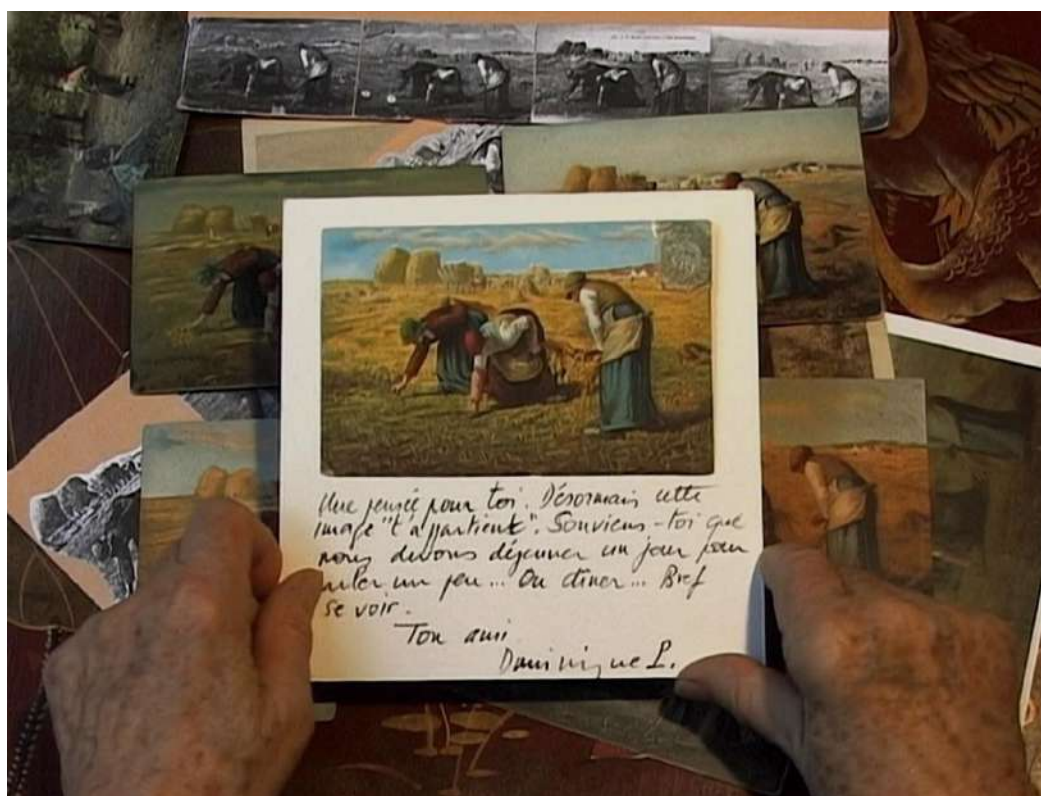 Une pensée pour toi. Désormais cette
image "t'appartient". Souviens-toi que
nous devons déjeuner un jour pour
parler un peu... Ou dîner... Bref
se voir.
Ton ami
Dominique P.